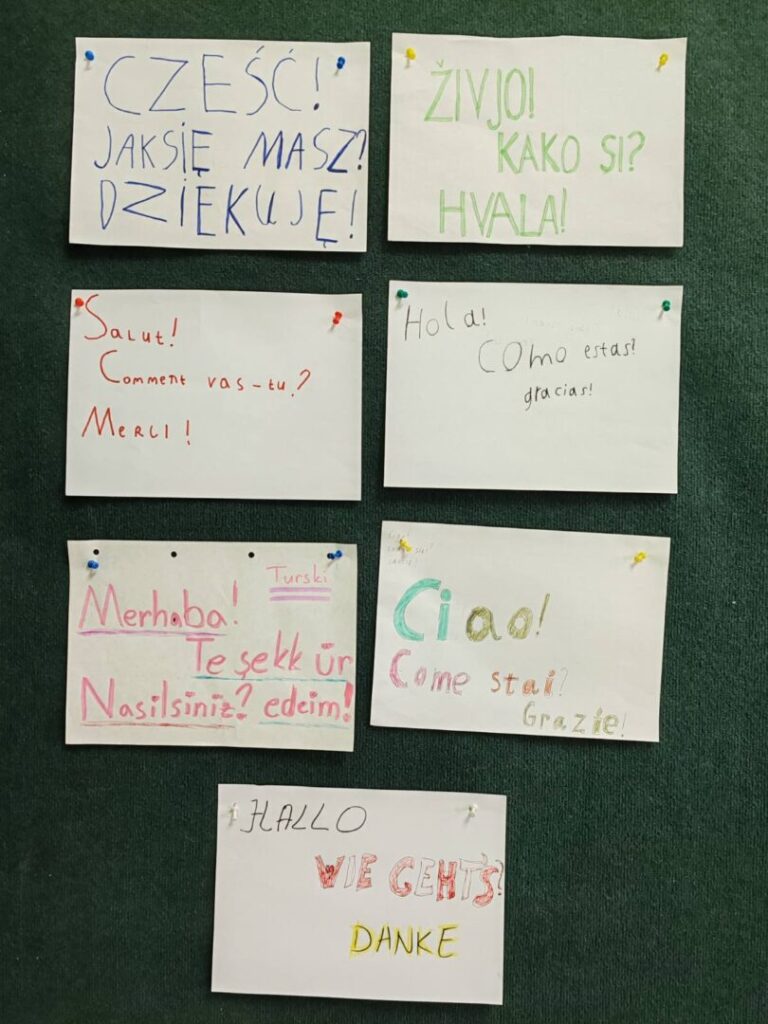 CZEŚĆ!
JAK SIĘ MASZ?
DZIĘKUJĘ!
ŽIVJO!
KAKO SI?
HVALA!
Salut!
Comment vas-tu?
Merci!
Hola!
Como estas?
gracias!
Turski
Merhaba!
Te şekk ür
Nasilsiniz? edeim!
Ciao!
Come stai?
Grazie!
HALLO
WIE GEHT'S?
DANKE